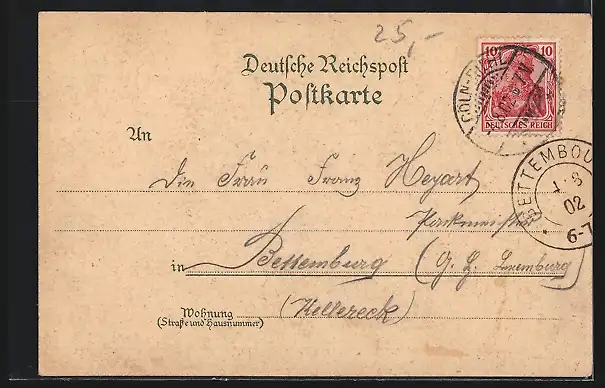 25,-
Deutsche Reichspost
Postkarte
10 10
DEUTSCHES REICH
CÖLN-
BETTEMBOU
4 8
02
6-7
An
Die Frau Franz Heyart
in Bettemburg (G. H. Luxemburg)
Wohnung
(Straße und Hausnummer)
(Kellereck)